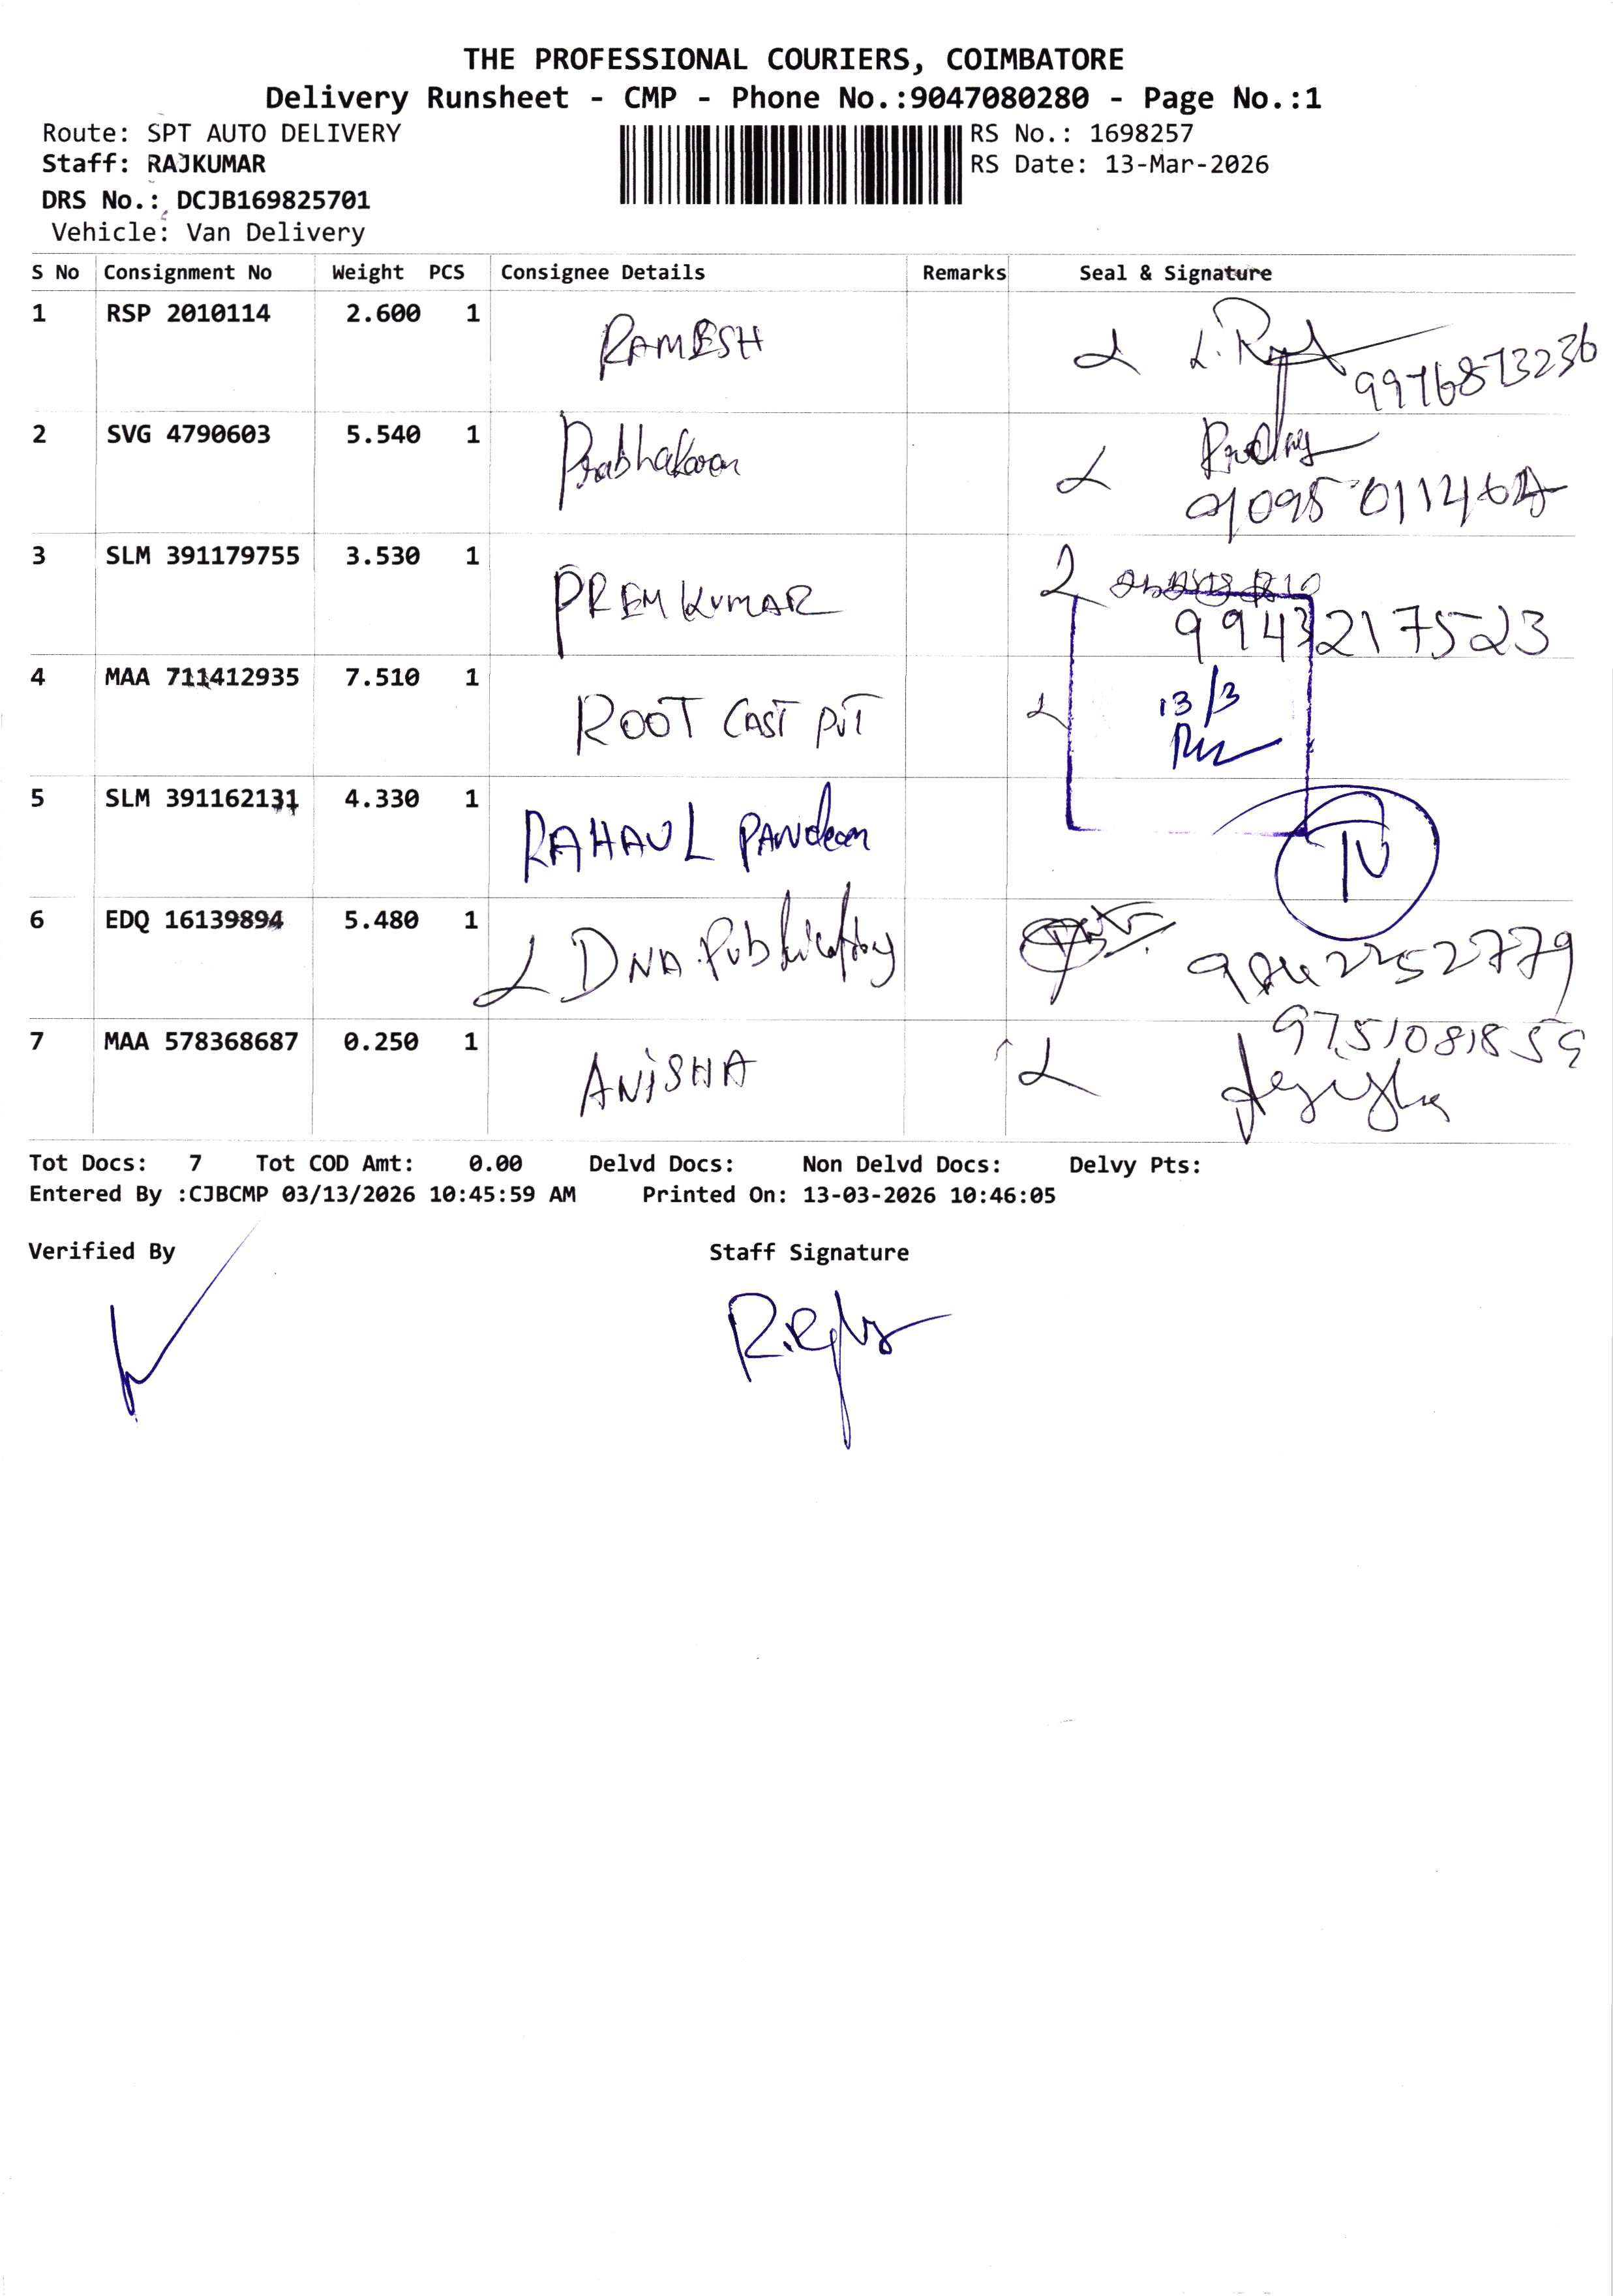 THE PROFESSIONAL COURIERS, COIMBATORE
Delivery Runsheet - CMP - Phone No.:9047080280 - Page No.:1
Route: SPT AUTO DELIVERY
Staff: RAJKUMAR
DRS No.: DCJB169825701
Vehicle: Van Delivery
RS No.: 1698257
RS Date: 13-Mar-2026
S No Consignment No Weight PCS Consignee Details Remarks Seal & Signature
1 RSP 2010114 2.600 1 RAMESH
9976873236
2 SVG 4790603 5.540 1 Prabhakaran
3 SLM 391179755 3.530 1 PREM KUMAR
9943217523
4 MAA 711412935 7.510 1 ROOT CAST PVT 13/3
5 SLM 391162131 4.330 1 RAHAUL PANdean
6 EDQ 16139894 5.480 1 DNA
7 MAA 578368687 0.250 1 ANiSHA
Tot Docs: 7 Tot COD Amt: 0.00 Delvd Docs: Non Delvd Docs: Delvy Pts:
Entered By :CJBCMP 03/13/2026 10:45:59 AM Printed On: 13-03-2026 10:46:05
Verified By Staff Signature